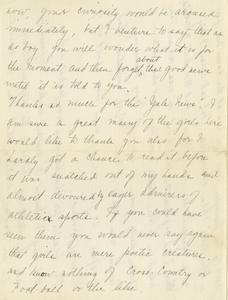 now your curiosity would be aroused
immediately, but I venture to say that as
a boy you will wonder what it is for
the moment and then forget about this good
until it is told to you.
Thanks so much for the "Yale News". I
am sure a great many of the girls here
would like to thank you also for I
hardly got a chance to read it before
it was snatched out of my hands and
almost devoured by eager admirers of
athletic sports. If you could have
seen them you would never say again
that girls are mere poetic creatures
and know nothing of Cross-Country or
Foot ball or the like.